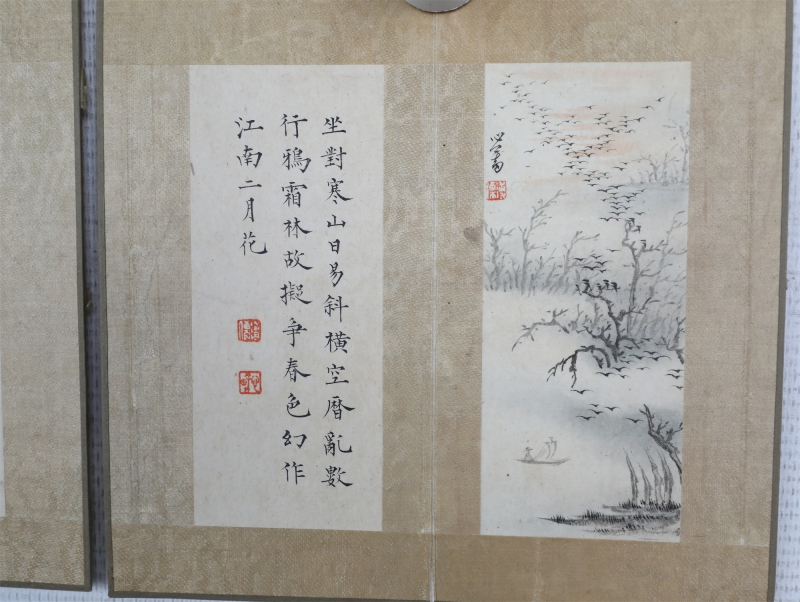 坐對寒山日易斜橫空曆亂數
行鴉霜林故擬争春色幻作
江南二月花
心畬